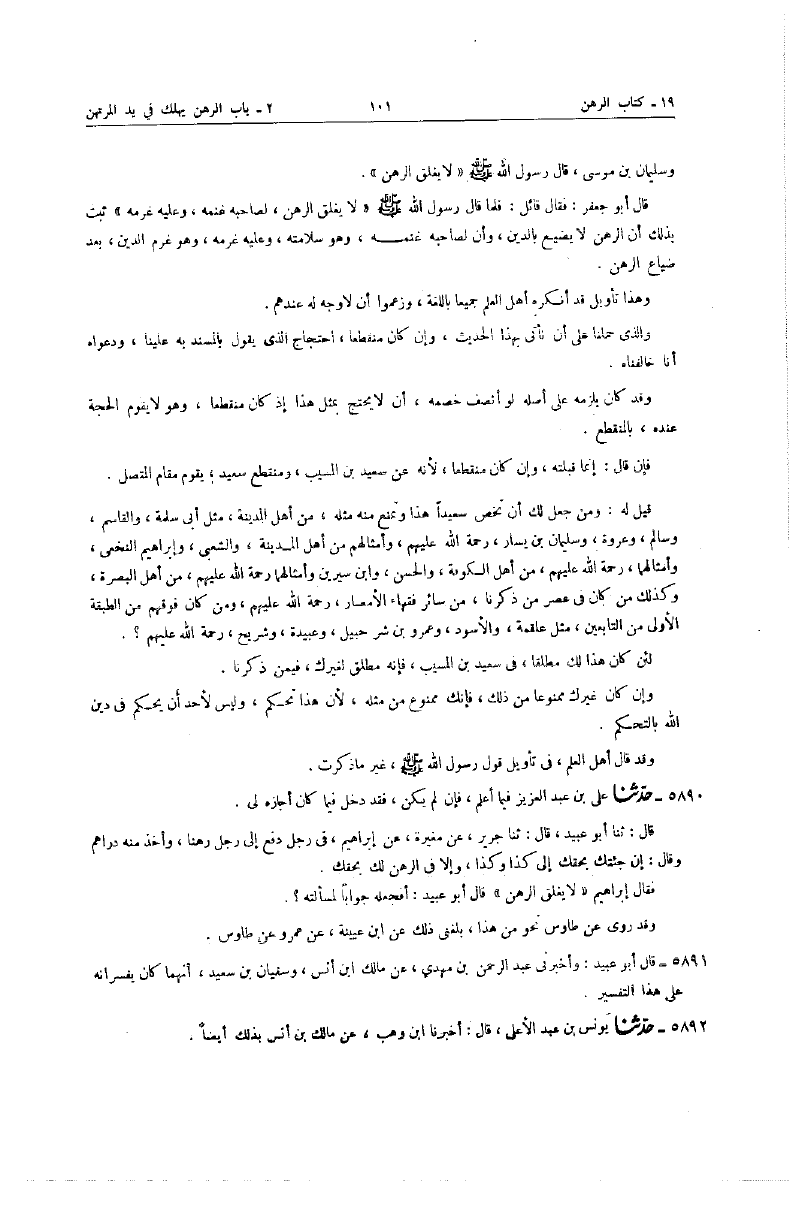 ١٩ ـ كتاب الرهن ١٠١ ٢ ـ باب الرهن يهلك في يد المرتهن
وسليمان بن موسى ، قال رسول الله ﷺ « لا يغلق الرهن » .
قال أبو جعفر : فقال قائل : فلما قال رسول الله ﷺ « لا يغلق الرهن ، لصاحبه غنمه ، وعليه غرمه » ثبت
بذلك أن الرهن لا يضيع بالدين ، وأن لصاحبه غنمـــه ، وهو سلامته ، وعليه غرمه ، وهو غرم الدين ، بعد
ضياع الرهن .
وهذا تأويل قد أنكره أهل العلم جميعا باللغة ، وزعموا أن لاوجه له عندهم .
والذى حملنا على أن نأتى بهذا الحديث ، وإن كان منقطعا ، احتجاج الذى يقول بالمسند به علينا ، ودعواه
أنا خالفناه .
وقد كان يلزمه على أصله لو أنصف خصمه ، أن لايحتج بمثل هذا إذ كان منقطعا ، وهو لايقوم الحجة
عنده ، بالمنقطع .
فإن قال : إنما قبلته ، وإن كان منقطعا ، لأنه عن سعيد بن المسيب ، ومنقطع سعيد ؛ يقوم مقام المتصل .
قيل له : ومن جعل لك أن تخص سعيداً هذا وتمنع منه مثله ، من أهل المدينة ، مثل أبى سلمة ، والقاسم ،
وسالم ، وعروة ، وسليمان بن يسار ، رحمة الله عليهم ، وأمثالهم من أهل المـدينة ، والشعبى ، وإبراهيم النخعى ،
وأمثالهما ، رحمة الله عليهم ، من أهل الـكوفة ، والحسن ، وابن سيرين وأمثالهما رحمة الله عليهم ، من أهل البصرة ،
وكذلك من كان فى عصر من ذكرنا ، من سائر فقهاء الأمصار ، رحمة الله عليهم ، ومن كان فوقهم من الطبقة
الأولى من التابعين ، مثل علقمة ، والأسود ، وعمرو بن شر حبيل ، وعبيدة ، وشريح ، رحمة الله عليهم ؟ .
لئن كان هذا لك مطلقا ، فى سعيد بن المسيب ، فإنه مطلق لغيرك ، فيمن ذكرنا .
وإن كان غيرك ممنوعا من ذلك ، فإنك ممنوع من مثله ، لأن هذا تحـكم ، وليس لأحد أن يحـكم فى دين
الله بالتحـكم .
وقد قال أهل العلم ، فى تأويل قول رسول الله ﷺ ، غير ماذكرت .
٥٨٩٠ ـ حدثنا على بن عبد العزيز فيما أعلم ، فإن لم يكن ، فقد دخل فيما كان أجازه لى .
قال : ثنا أبو عبيد ، قال : ثنا جرير ، عن مغيرة ، عن إبراهيم ، فى رجل دفع إلى رجل رهنا ، وأخذ منه دراهم
وقال : إن جئتك بحقك إلى كذا وكذا ، وإلا فى الرهن لك بحقك .
فقال إبراهيم « لا يغلق الرهن » قال أبو عبيد : أفجعله جواباً لمسألته ؟ .
وقد روى عن طاوس نحو من هذا ، بلغنى ذلك عن ابن عيينة ، عن عمرو عن طاوس .
٥٨٩١ ـ قال أبو عبيد : وأخبرنى عبد الرحمن بن مهدي ، عن مالك ابن أنس ، وسفيان بن سعيد ، أنهما كان يفسرانه
على هذا التفسير .
٥٨٩٢ ـ حدثنا يونس بن عبد الأعلى ، قال : أخبرنا ابن وهب ، عن مالك بن أنس بذلك أيضاً .